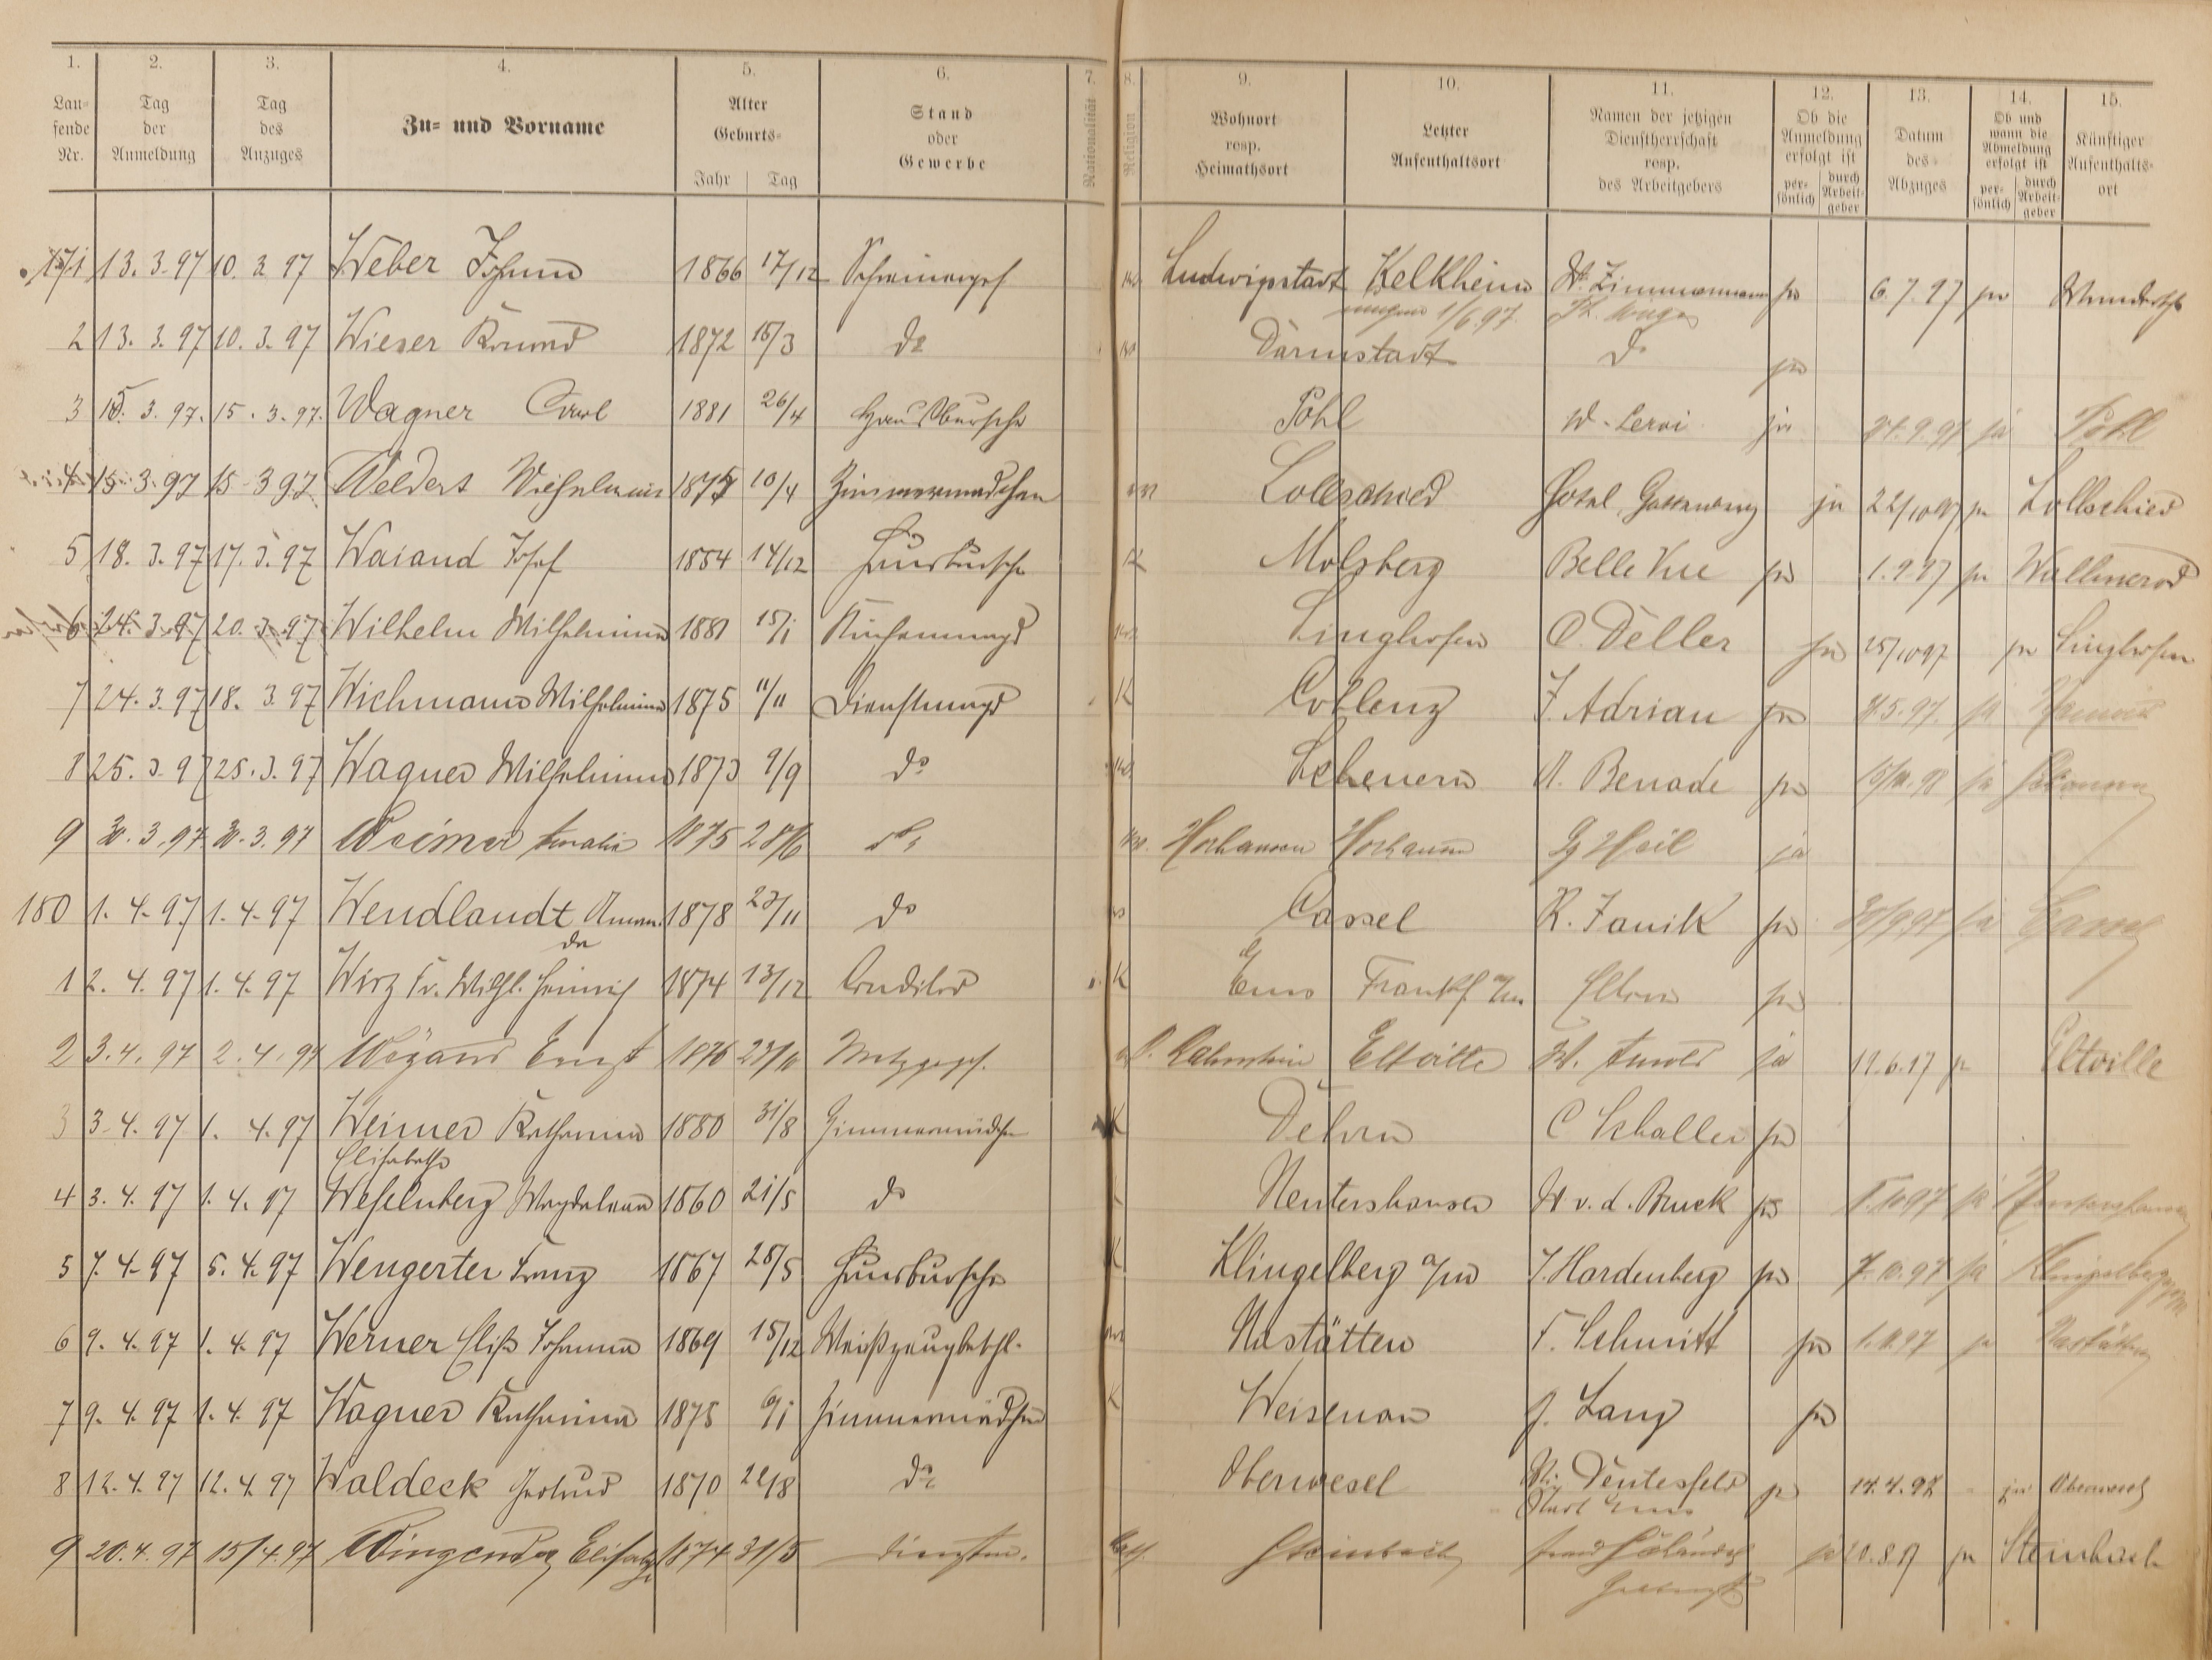 1. 2. 3. 4. 5. 6. 7. 8. 9. 10. 11. 12. 13. 14. 15.
Lau-fende Nr. Tag der Anmeldung Tag des Anzuges Zu- und Vorname Alter Geburts- Jahr Tag Stand oder Gewerbe Nationalität Religion Wohnort resp. Heimathsort Letzter Aufenthaltsort Namen der jetzigen Dienstherrschaft resp. des Arbeitgebers Ob die Anmeldung erfolgt ist per-sönlich durch Arbeit-geber Datum des Abzuges Ob und wann die Abmeldung erfolgt ist per-sönlich durch Arbeit-geber Künftiger Aufenthalts-ort
171 13. 3. 97 10. 3. 97 Weber Johann 1866 17/12 Schreinerges Ludwigstadt Kelkheim W. Zimmermann ja 6. 7. 97 ja
1/6.97.
2 13. 3. 97 10. 3. 97 Wieser Konrad 1872 15/3 do Darmstadt do ja
3 15. 3. 97. 15. 3. 97. Wagner Carl 1881 26/4 Hausbursche Pohl W. Leroi ja 24. 9. 97 ja Pohl
4 15. 3. 97 15. 3 97 Weldert Wilhelmine 1875 10/4 Zimmermädchen Lollschied Hotel Guttenberg ja 22/10 97 ja Lollschied
5 18. 3. 97 17. 3. 97 Waiand Josef 1884 14/12 Hausbursche K Molsberg Belle Vue ja 1. 9 97 ja Wallmerod
6 24. 3. 97 20. 3. 97 Wilhelm Wilhelmine 1881 15/1 Küchenmagd Singhofen O. Deller ja 25/10 97 ja Singhofen
7 24. 3. 97 18. 3. 97 Wichmann Wilhelmine 1875 11/11 Dienstmagd K Coblenz J. Adrian ja 8. 5. 97. ja
8 25. 3. 97 25. 3. 97 Wagner Wilhelmine 1873 9/9 do Scheuern A. Benade ja ja
9 30. 3. 97 30. 3. 97 Weimer Amalie 1875 28/6 do Hochausen Hochausen Gg Heil ja
180 1. 4. 97 1. 4. 97 Wendlandt Aman-da 1878 23/11 do Cassel R. Janik ja ja Cassel
1 2. 4. 97 1. 4. 97 Wirz Fr. Wilhl. Heinrich 1874 13/12 Conditor K Ems Frankf a/m Eltern ja
2 3. 4. 97 2. 4. 97 Wigand Ernst 1876 Metzgerges. O. Lahnstein Eltville W. Arnold ja 19. 6. 97 ja Eltville
3 3. 4. 97 1. 4. 97 Weimer Katharina Elisabetha 1880 31/8 Zimmermädchen K Dehrn C Schaller ja
4 3. 4. 97 1. 4. 97 Weselnberg Magdalena 1860 21/5 do K Nentershausen W v. d. Bruck ja ja Nentershausen
5 7. 4. 97 5. 4. 97 Wengerter Franz 1867 28/5 Hausbursche K Klingelberg a/m J. Hardenberg ja 7. 10. 97 ja Klingelberg a/M
6 9. 4. 97 1. 4. 97 Werner Elise Johanna 1869 15/12 Weißzeugbeschl. Nastätten F. Schmitt ja 1. 11. 97 ja Nastätten
7 9. 4. 97 1. 4. 97 Wagner Katharina 1875 9/1 Zimmermädchen K Weisenau J. Lang ja
8 12. 4. 97 12. 4. 97 Waldeck Gertrud 1870 22/8 do Oberwesel Deutesfeld Stadt Ems ja 14. 4. 98 ja Oberwesel
9 20. 4. 97 15/4. 97 Wingender Elisabeth 1874 31/5 Dienstm. Kath. Steinbach ja 20. 8 97 ja Steinbach